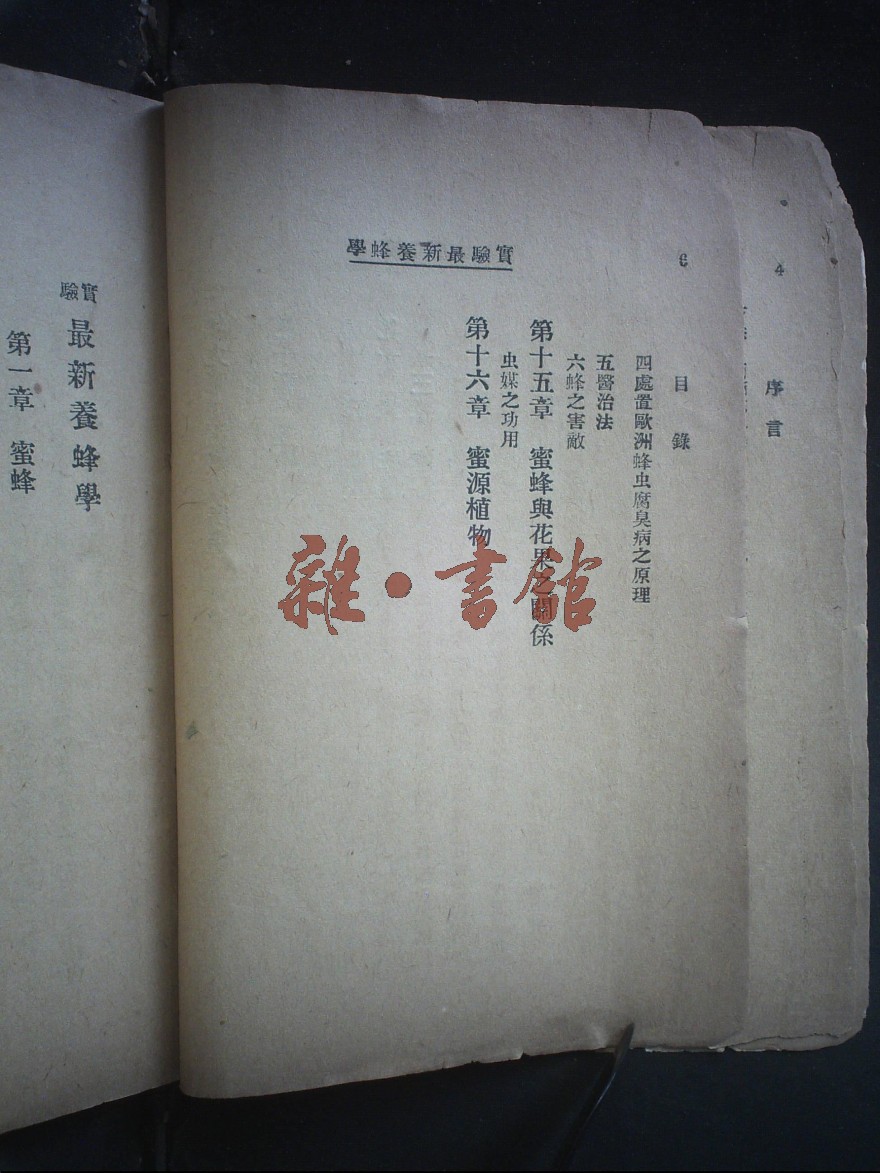 4
序言
實驗最新養蜂學
6
目錄
四處置歐洲蜂虫腐臭病之原理
五醫治法
六蜂之害敵
第十五章 蜜蜂與花果之關係
虫媒之功用
第十六章 蜜源植物
雜·書館
實驗
最新養蜂學
第一章 蜜蜂